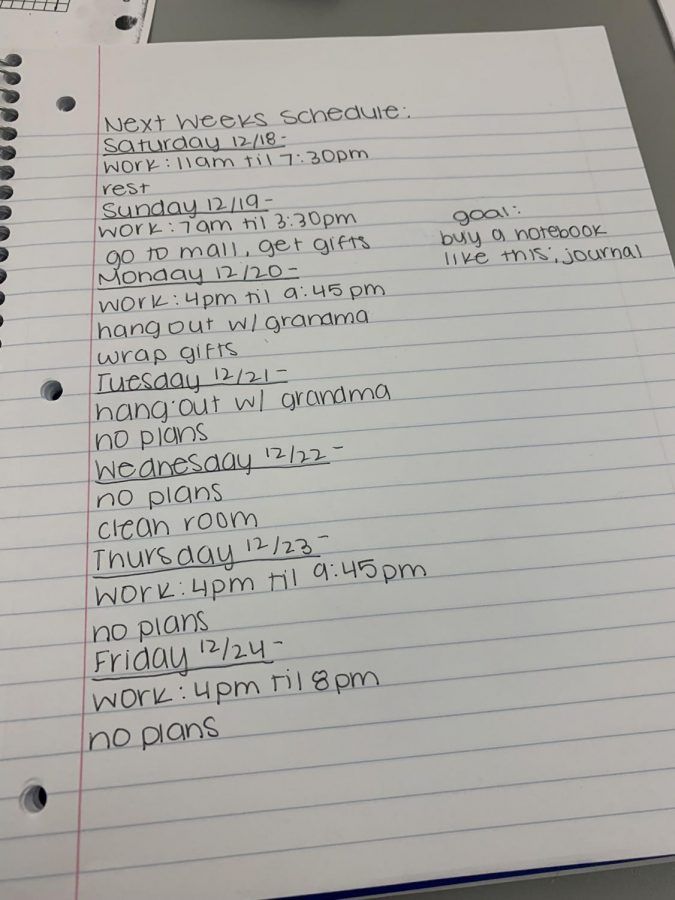 Next Weeks Schedule:
Saturday 12/18-
work: 11am til 7:30pm
rest
Sunday 12/19-
work: 7am til 3:30pm
go to mall, get gifts
Monday 12/20-
work: 4pm til 9:45pm
hang out w/ grandma
wrap gifts
Tuesday 12/21-
hang out w/ grandma
no plans
Wednesday 12/22-
no plans
clean room
Thursday 12/23-
work: 4pm til 9:45pm
no plans
Friday 12/24-
work: 4pm til 8pm
no plans
goal:
buy a notebook
like this; journal